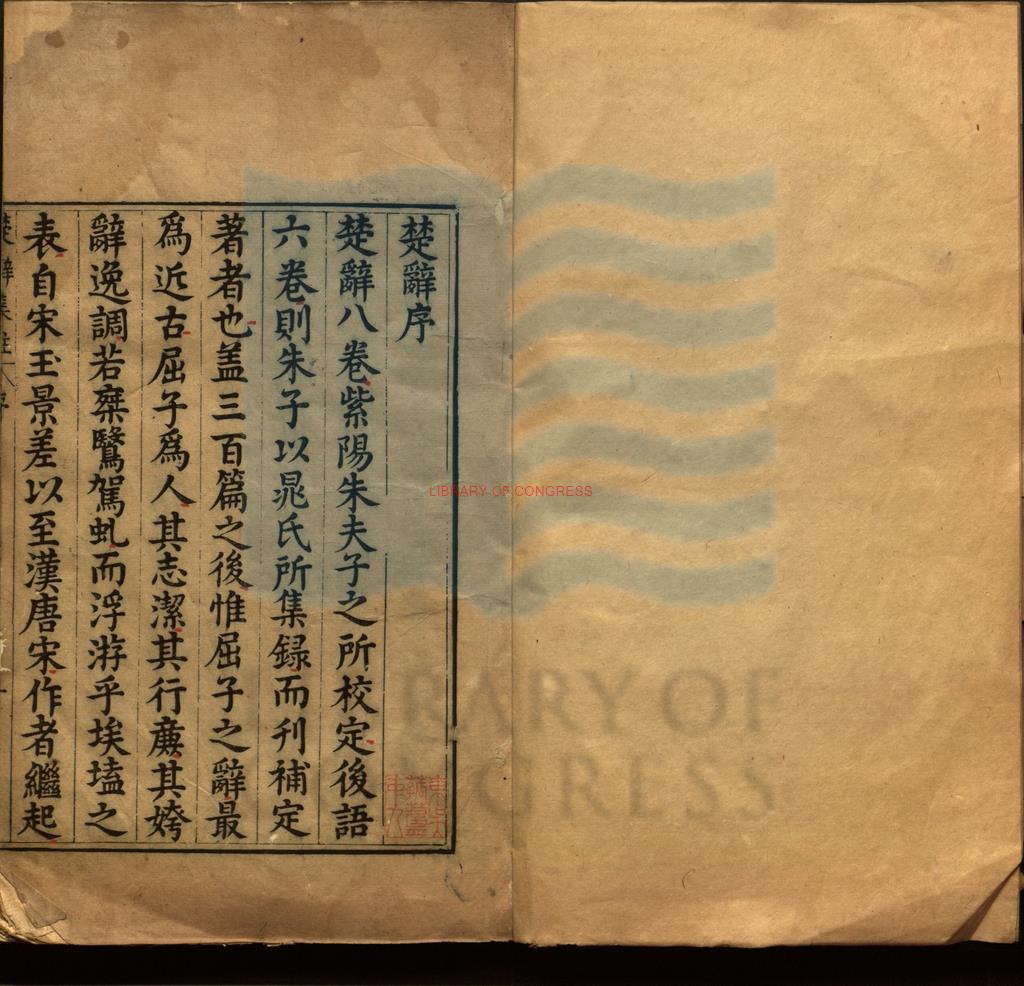 楚辭序
楚辭八卷紫陽朱夫子之所校定後語
六卷則朱子以晁氏所集録而刊補定
著者也盖三百篇之後惟屈子之辭最
爲近古屈子爲人其志潔其行廉其姱
辭逸調若椉鷖駕虬而浮游乎埃壒之
表自宋玉景差以至漢唐宋作者繼起
LIBRARY OF CONGRESS